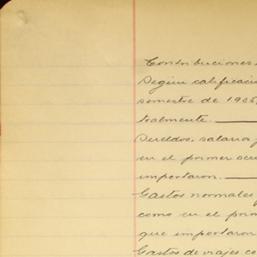 Contribuciones
Según calificaci
semestre de 1926,
tualmente.
Sueldos, salarios
en el primer sem
importaron.
Gastos normales
como en el prim
que importaron
Gastos de viajes co